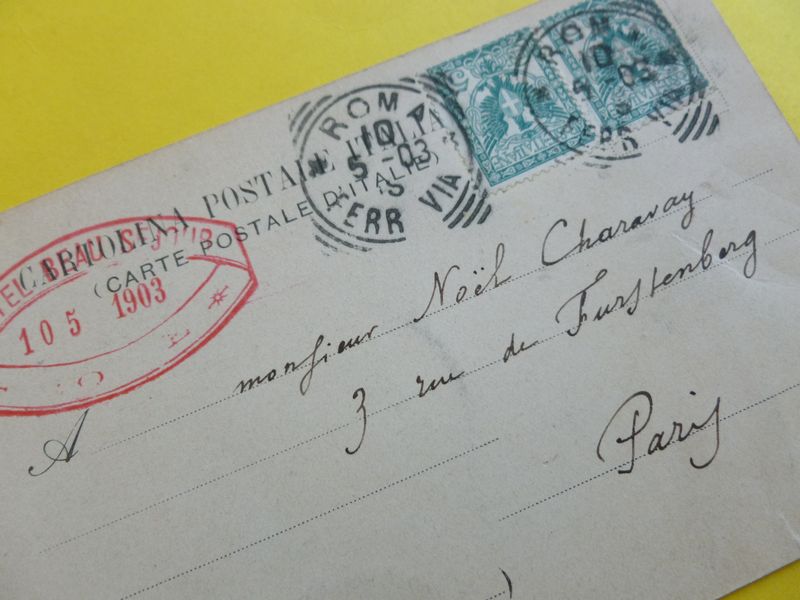 CARTOLINA POSTALE ITALIA
(CARTE POSTALE D'ITALIE)
ROMA
10
5 - 03
5
FERR VIA
ROMA
10
- 03
FERR VIA
BEAU SÉJOUR
10 5 1903
A monsieur Noël Charavay
3 rue de Furstenberg
Paris